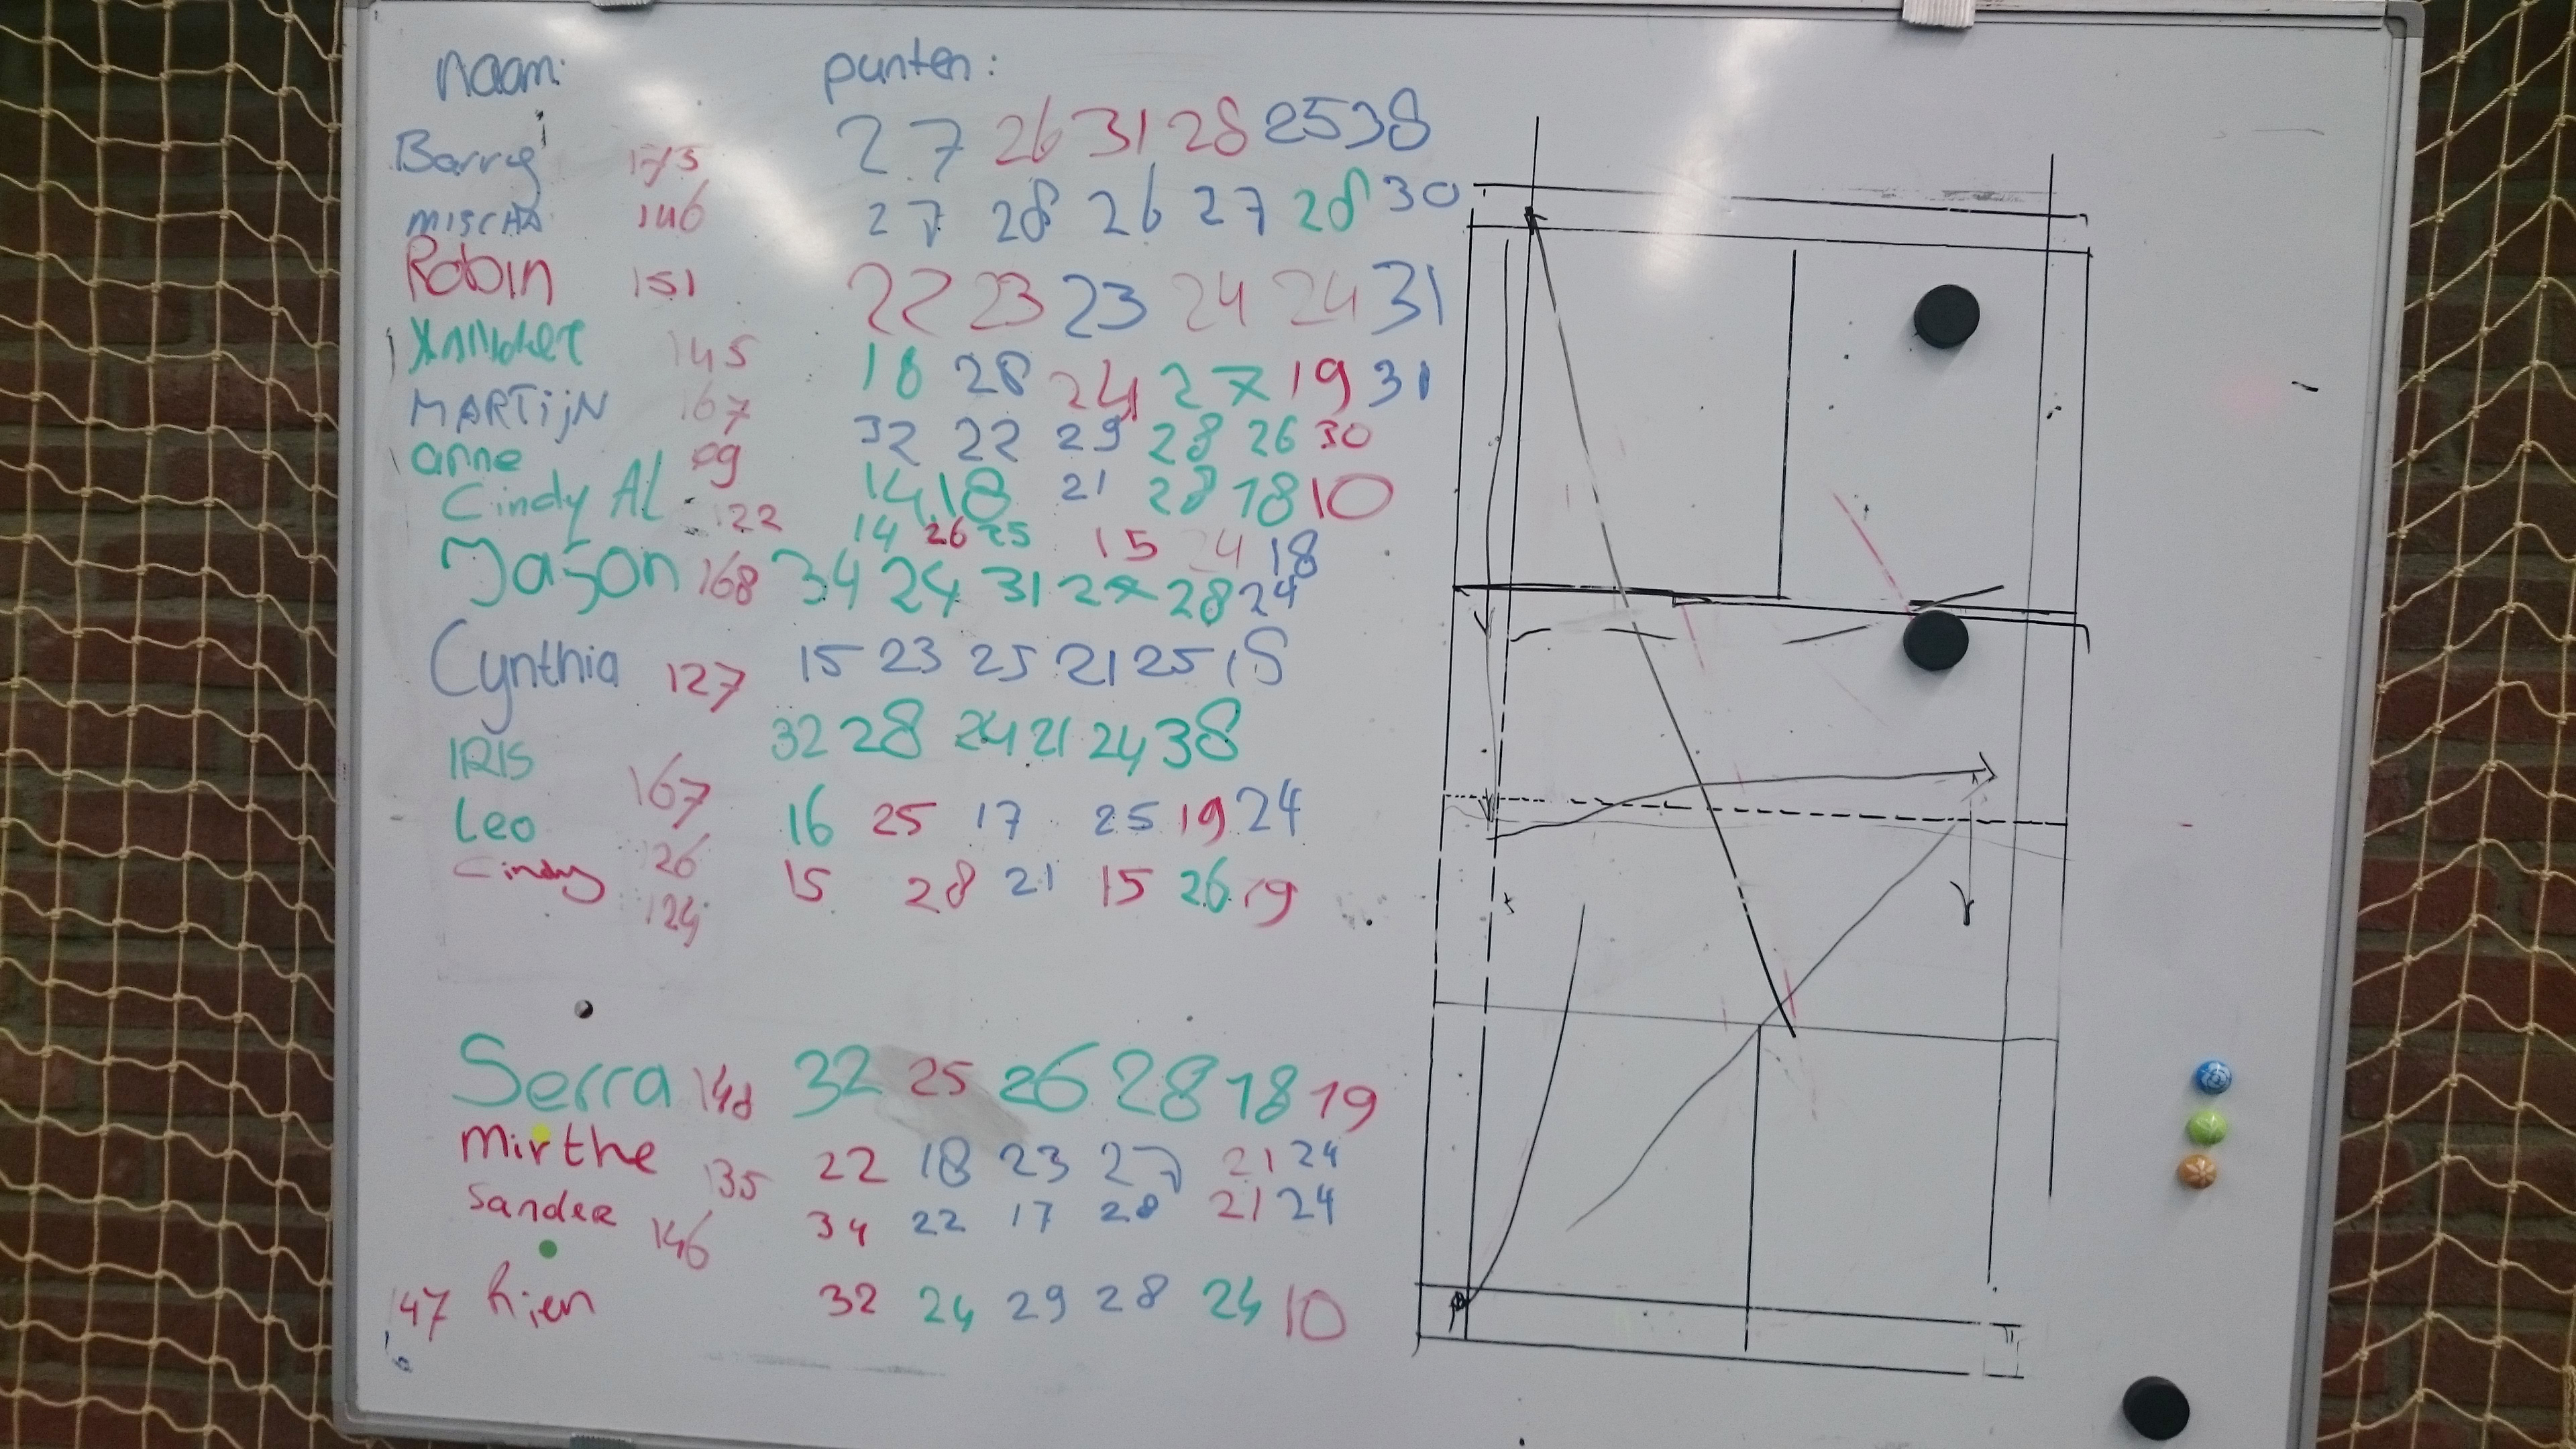 naam: punten:
Barry 175 27 26 31 28 25 38
MISCHA 146 27 28 26 27 28 30
Robin 151 22 23 23 24 24 31
145 18 28 24 27 19 31
MARTijN 167 32 22 29 28 26 30
anne 99 14 18 21 28 18 10
Cindy Al 122 14 26 25 15 24 18
Jason 168 34 24 31 27 28 24
Cynthia 127 15 23 25 21 25 15
IRIS 167 32 28 24 21 24 38
Leo 126 16 25 17 25 19 24
Cindy 124 15 28 21 15 26 19
Serra 148 32 25 26 28 18 19
Mirthe 135 22 18 23 27 21 24
Sander 146 34 22 17 28 21 24
147 Rien 32 24 29 28 24 10